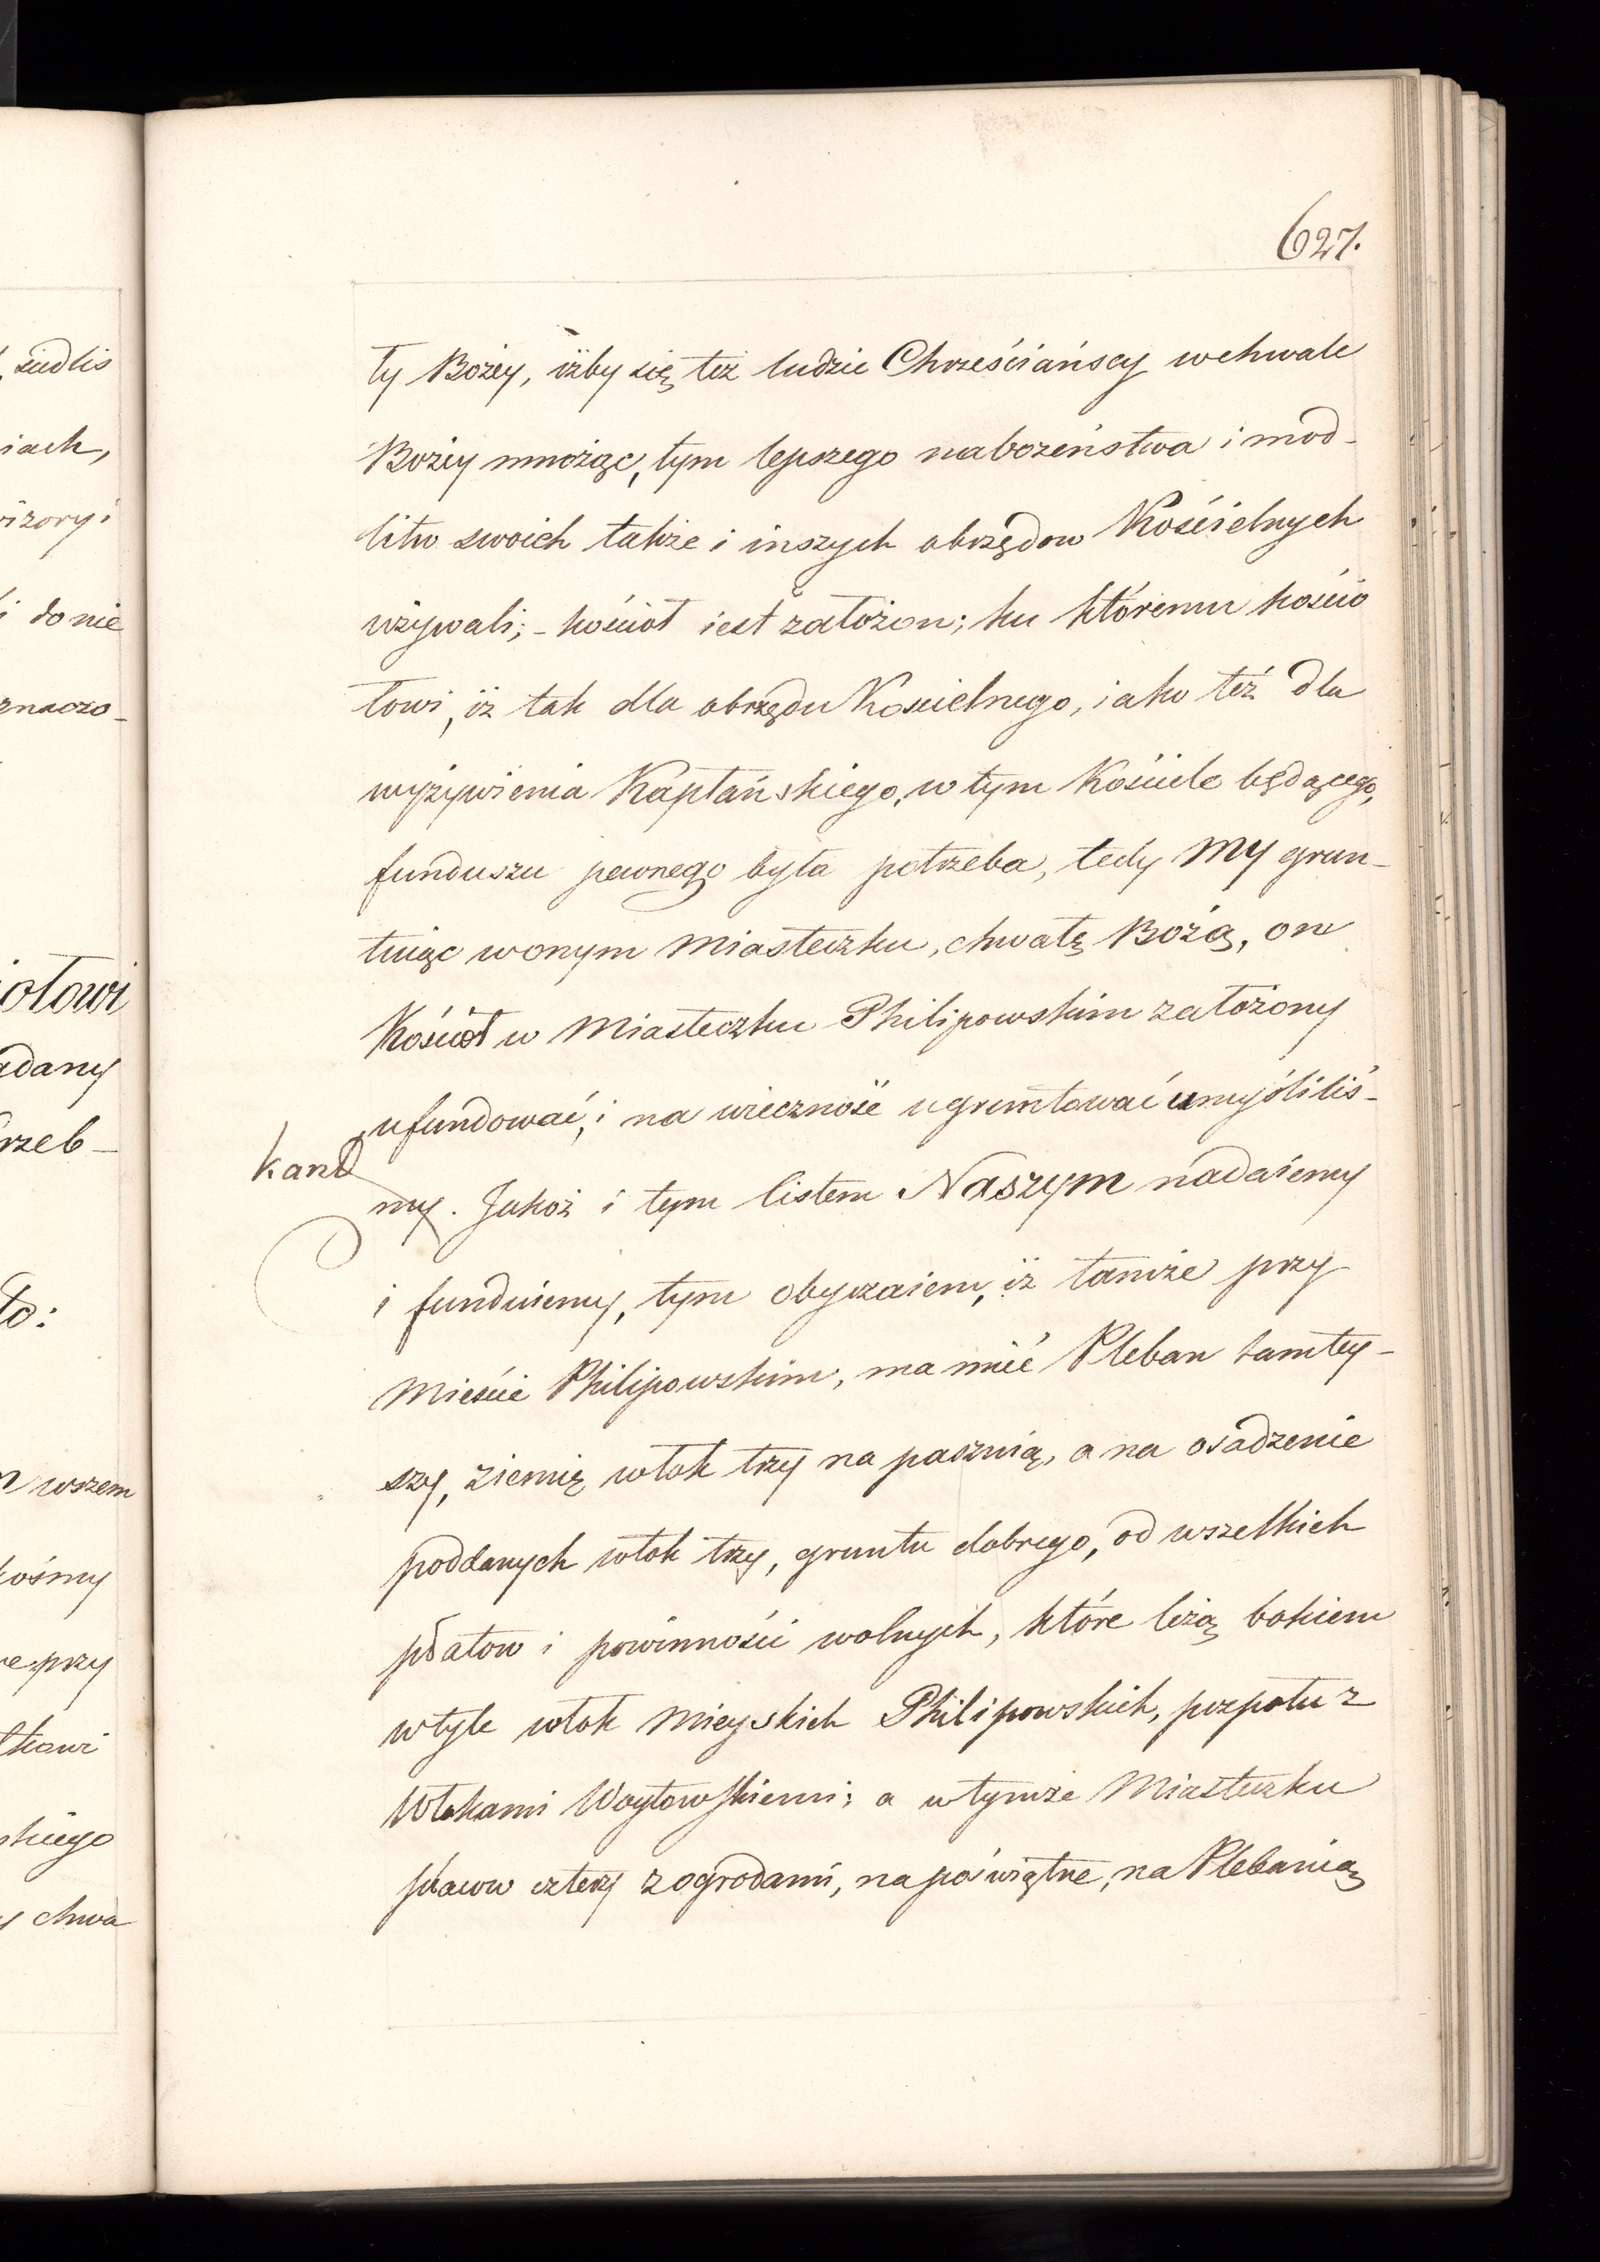 627.
ły Bożéy, iżby się też ludzie Chrześciańscy wchwale
Bożéy mnożąc, tym lepszego nabożeństwa i mod-
litw swoich także i inszych obrzędow Kościelnych
używali; - kościoł iest założon; ku któremu kościo
łowi, iż tak dla obrzędu Kościelnego, iako też dla
wyżywienia Kapłańskiego, w tym Kościele będącego,
funduszu pewnego była potrzeba, tedy MY grun-
tuiąc wonym Miasteczku, chwałę Bożą, on
Kościoł w Miasteczku Philipowskim założony
ufundować, i na wieczność ugruntować umyśliliś-
my. Jakoż i tym listem Naszym nadaiemy
i funduiemy, tym obyczaiem, iż tamże przy
Mieście Philipowskim, ma mieć Pleban tamtey-
szy, ziemię włok trzy na pasznią, a na osadzenie
poddanych włok trzy, gruntu dobrego, od wszelkich
płatow i powinności wolnych, które leżą bokiem
wtyle włok Mieyskich Philipowskich, pozpołu z
Włokami Woytowskiemi; a wtymże Miasteczku
placow cztery z ogrodami, na poświątne, na Plebanią
siedlis
iach,
do nie
znaczo-
adany
rzeb-
to:
wszem
przy
chwa